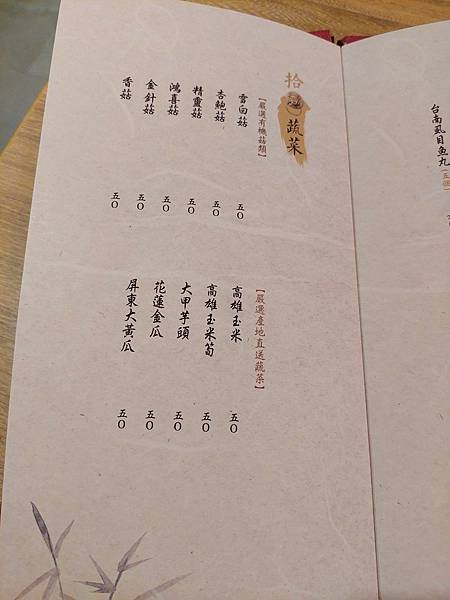 台南虱目魚丸(五個)
拾 蔬菜
【嚴選有機菇類】
雪白菇 五○
杏鮑菇 五○
精靈菇 五○
鴻喜菇 五○
金針菇 五○
香菇 五○
【嚴選產地直送蔬菜】
高雄玉米 五○
高雄玉米筍 五○
大甲芋頭 五○
花蓮金瓜 五○
屏東大黃瓜 五○